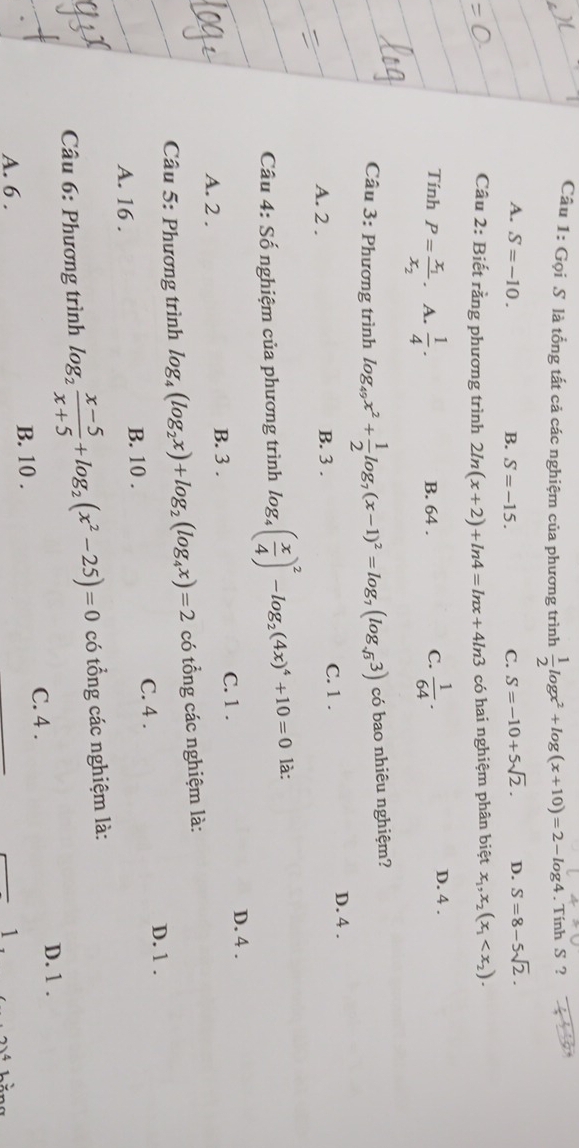 Câu 1: Gọi S là tổng tất cả các nghiệm của phương trình \frac{1}{2}logx^2 + log(x+10) = 2 - log4. Tính S ?
A. S = -10. B. S = -15. C. S = -10 + 5\sqrt{2}. D. S = 8 - 5\sqrt{2}.
Câu 2: Biết rằng phương trình 2ln(x+2) + ln4 = lnx + 4ln3 có hai nghiệm phân biệt x_1, x_2 (x_1 < x_2).
Tính P = \frac{x_1}{x_2}. A. \frac{1}{4}. B. 64. C. \frac{1}{64}. D. 4.
Câu 3: Phương trình log_{49}x^2 + \frac{1}{2}log_7(x-1)^2 = log_7(log_{\sqrt{3}}3) có bao nhiêu nghiệm?
A. 2. B. 3. C. 1. D. 4.
Câu 4: Số nghiệm của phương trình log_4(\frac{x}{4})^2 - log_2(4x)^4 + 10 = 0 là:
A. 2. B. 3. C. 1. D. 4.
Câu 5: Phương trình log_4(log_2x) + log_2(log_4x) = 2 có tổng các nghiệm là:
A. 16. B. 10. C. 4. D. 1.
Câu 6: Phương trình log_2\frac{x-5}{x+5} + log_2(x^2 - 25) = 0 có tổng các nghiệm là:
A. 6. B. 10. C. 4. D. 1.
= 0
log
=